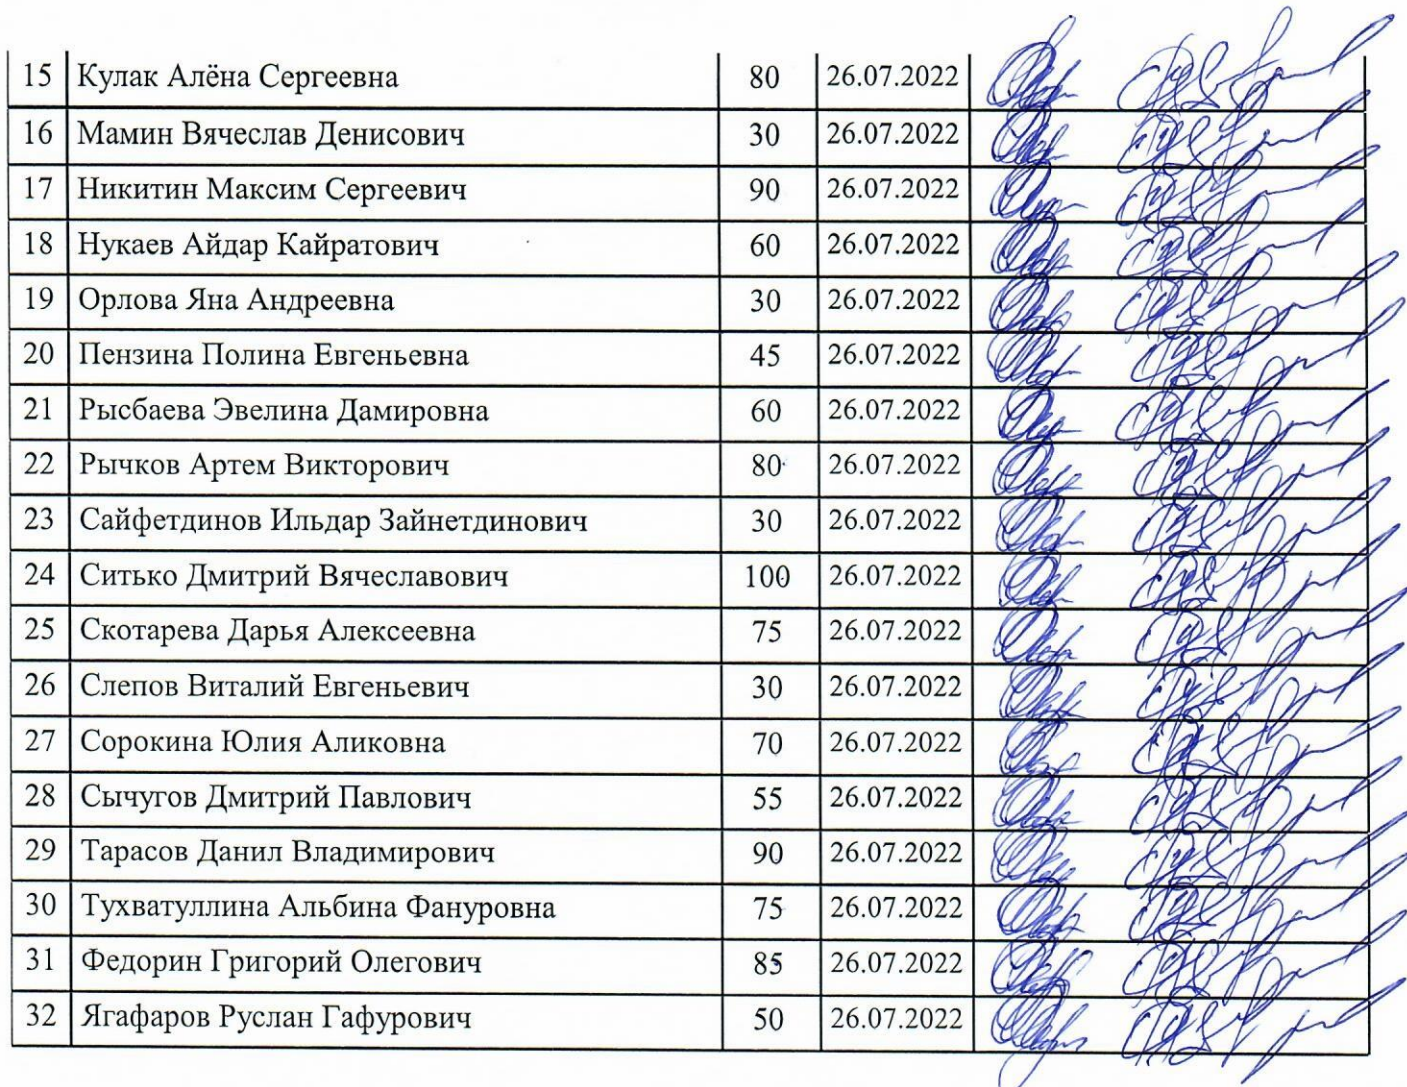 15 Кулак Алёна Сергеевна 80 26.07.2022
16 Мамин Вячеслав Денисович 30 26.07.2022
17 Никитин Максим Сергеевич 90 26.07.2022
18 Нукаев Айдар Кайратович 60 26.07.2022
19 Орлова Яна Андреевна 30 26.07.2022
20 Пензина Полина Евгеньевна 45 26.07.2022
21 Рысбаева Эвелина Дамировна 60 26.07.2022
22 Рычков Артем Викторович 80 26.07.2022
23 Сайфетдинов Ильдар Зайнетдинович 30 26.07.2022
24 Ситько Дмитрий Вячеславович 100 26.07.2022
25 Скотарева Дарья Алексеевна 75 26.07.2022
26 Слепов Виталий Евгеньевич 30 26.07.2022
27 Сорокина Юлия Аликовна 70 26.07.2022
28 Сычугов Дмитрий Павлович 55 26.07.2022
29 Тарасов Данил Владимирович 90 26.07.2022
30 Тухватуллина Альбина Фануровна 75 26.07.2022
31 Федорин Григорий Олегович 85 26.07.2022
32 Ягафаров Руслан Гафурович 50 26.07.2022